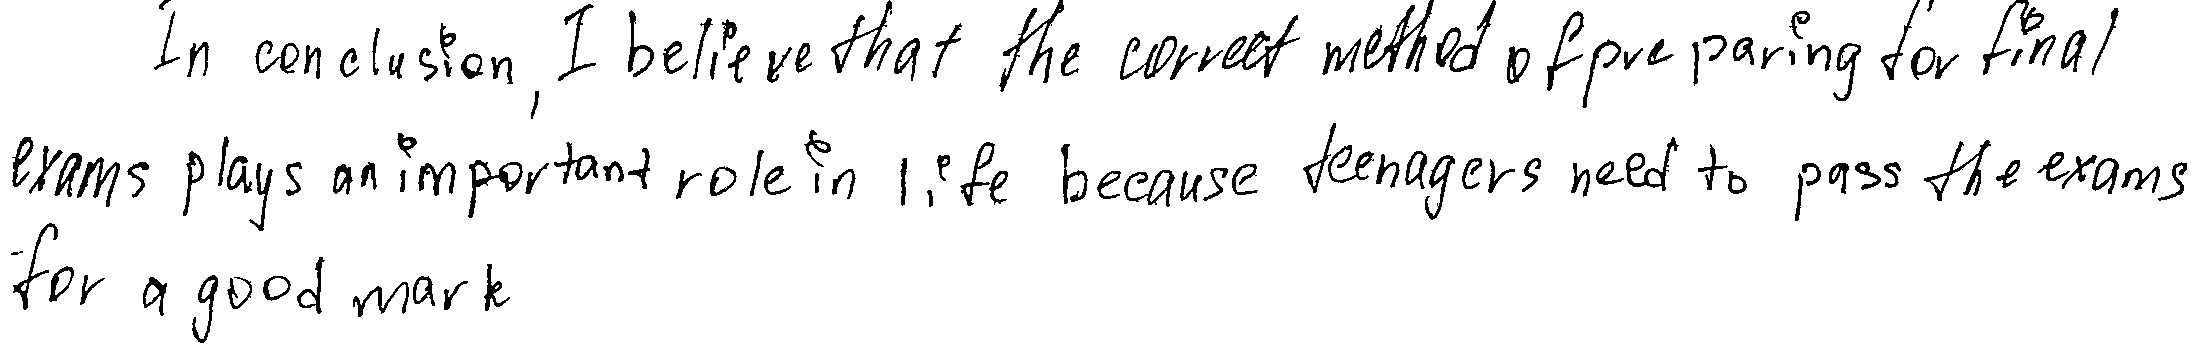 In conclusion, I believe that the correct method of preparing for final
exams plays an important role in life because teenagers need to pass the exams
for a good mark